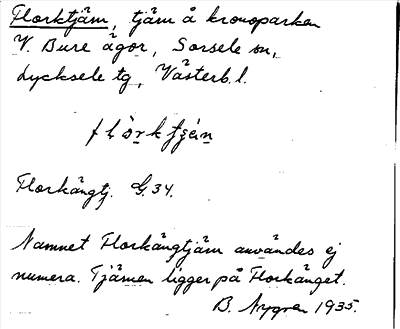 Florktjäm, tjäm å kronoparken
V. Bure ägor, Sorsele sn,
Lycksele tg, Västerb. l.
Florkängtj. G. 34.
Namnet Florkängtjäm användes ej
numera. Tjämen ligger på Florkänget.
B. Nygren 1935.